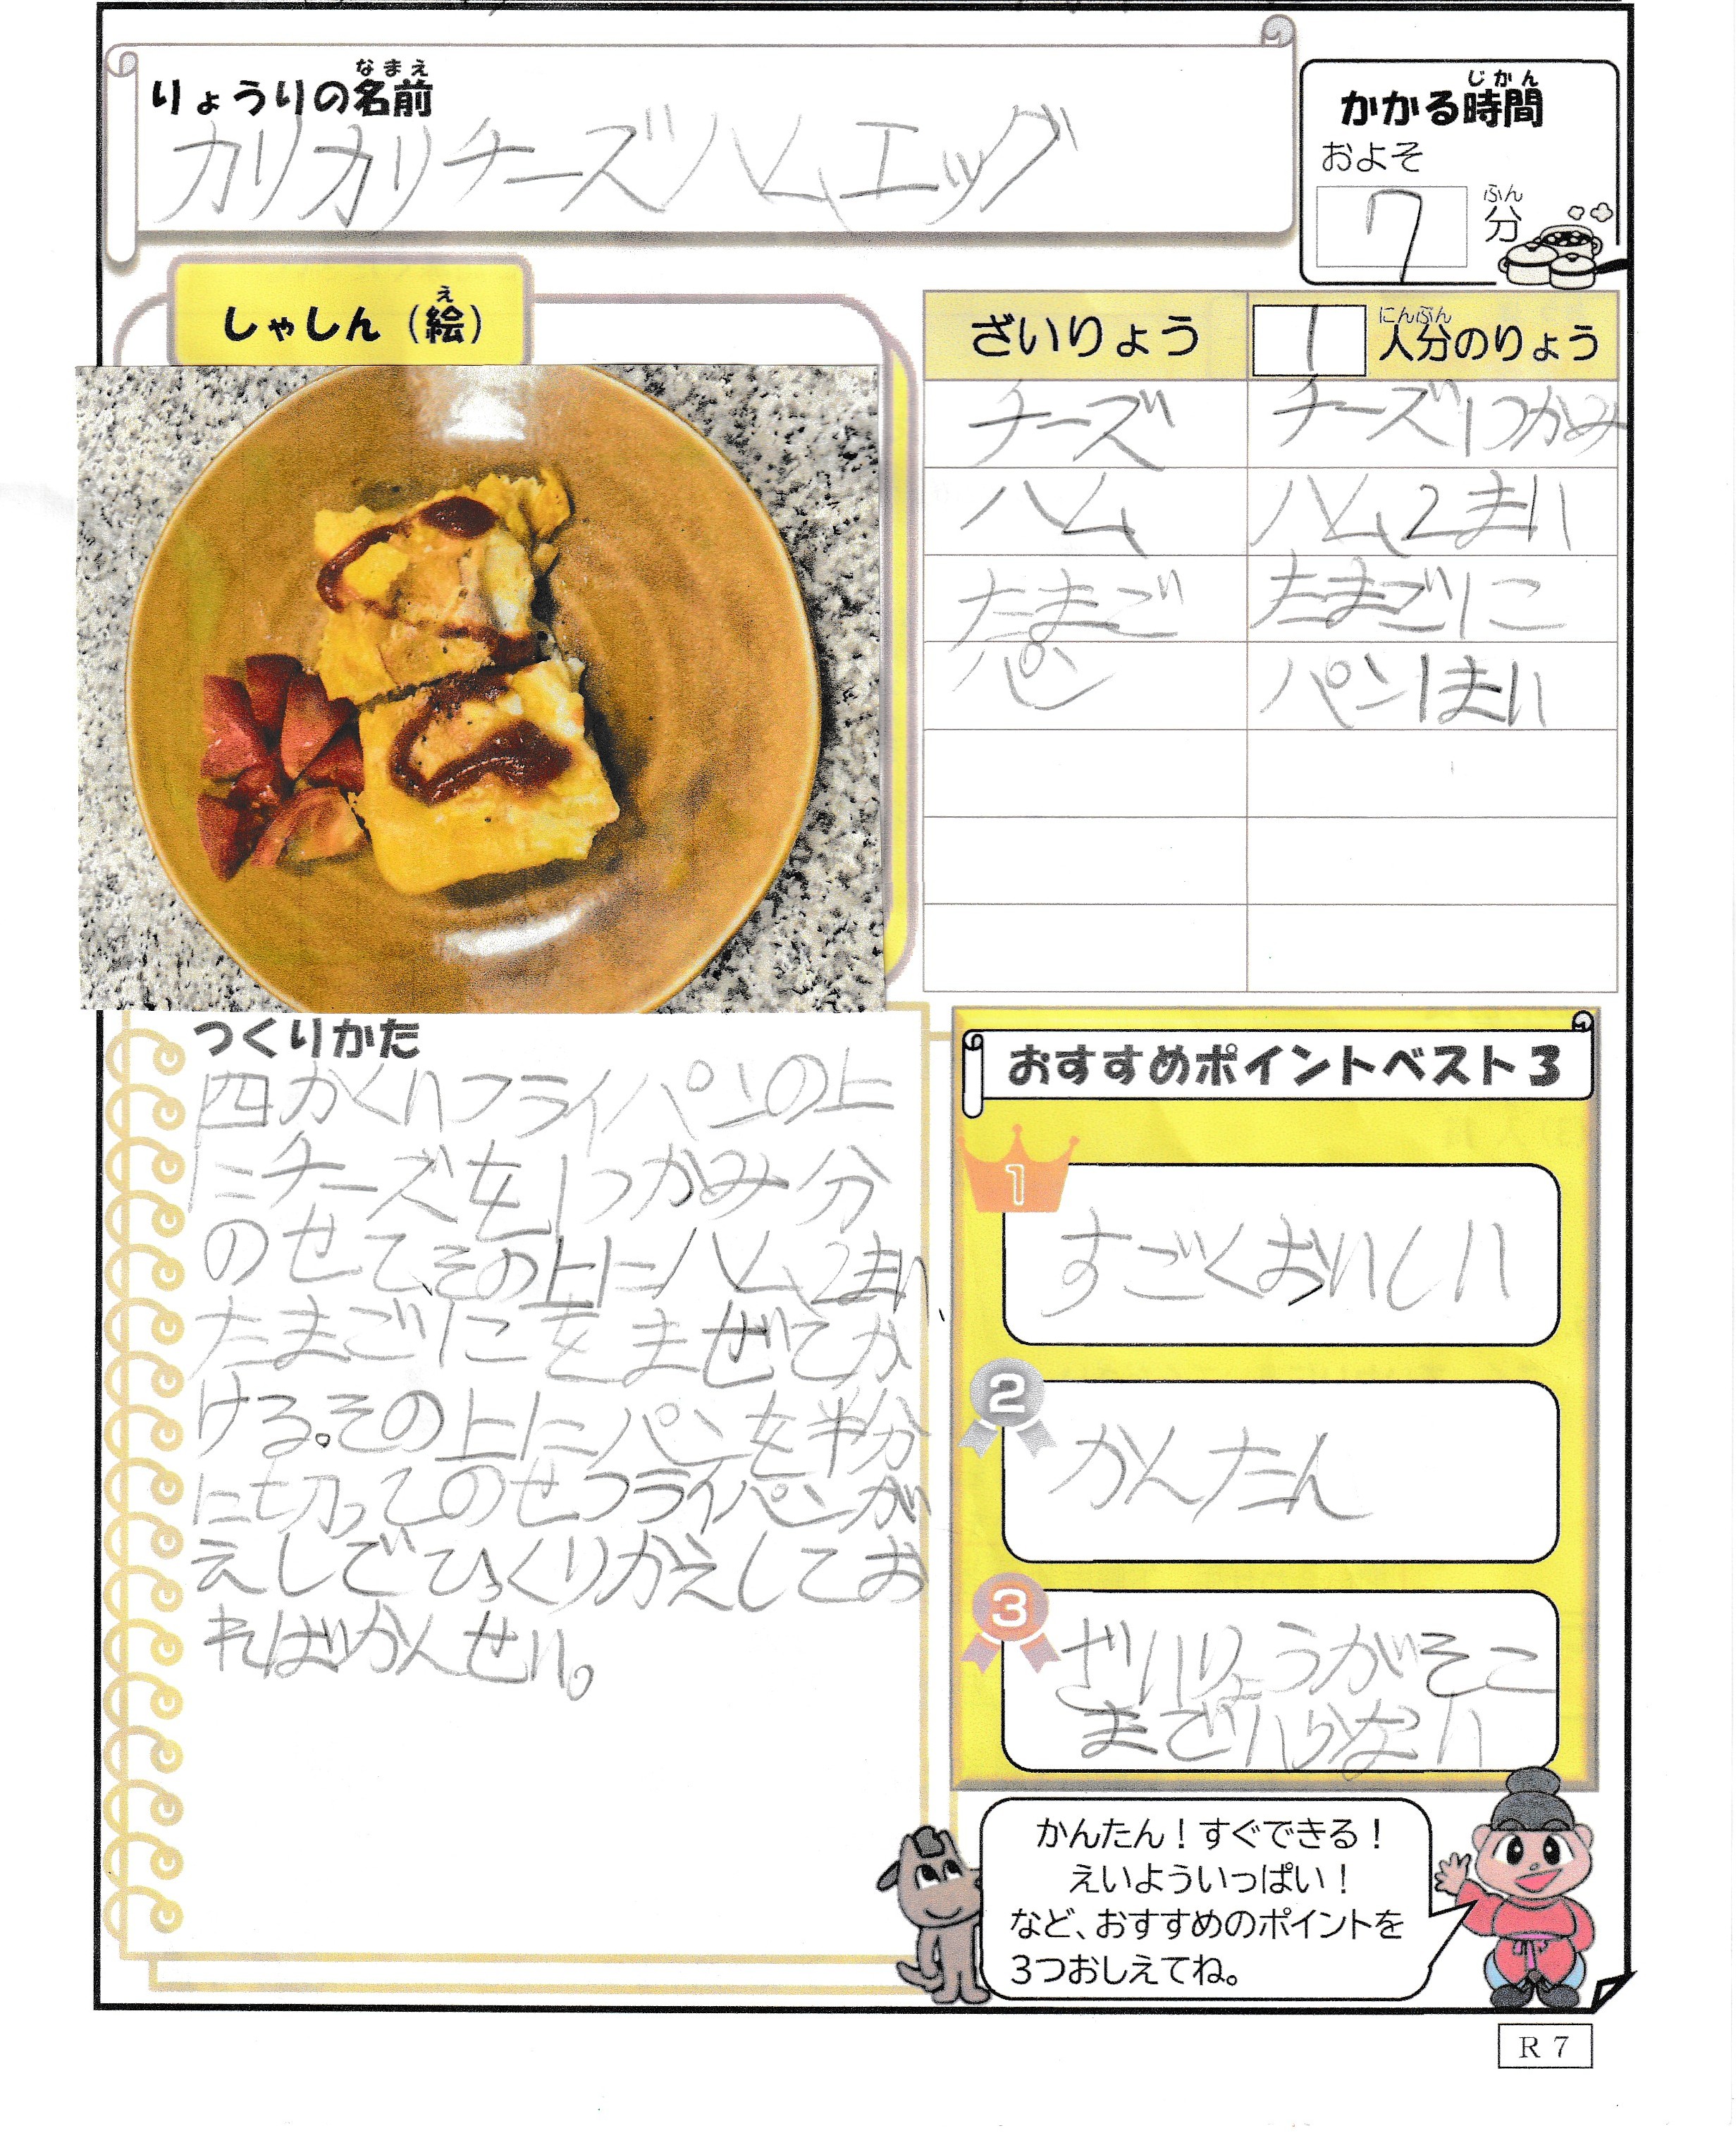 りょうりの名前
なまえ
カリカリチーズハムエッグ
かかる時間
じかん
およそ
7
分
ふん
しゃしん（絵）
え
ざいりょう
1
人分のりょう
にんぶん
チーズ
チーズ1つかみ
ハム
ハム2まい
たまご
たまご1こ
パン
パン1まい
つくりかた
四かくいフライパンの上
にチーズを1つかみ分
のせて、その上にハム2まい、
たまご1こをまぜてか
ける。その上にパンを半分
に切ってのせフライパンが
えしでひっくりがえしてお
ればかんせい。
おすすめポイントベスト3
1
すごくおいしい
2
かんたん
3
ざいりょうがそこ
までいらない
かんたん！すぐできる！
えいよういっぱい！
など、おすすめのポイントを
3つおしえてね。
R7